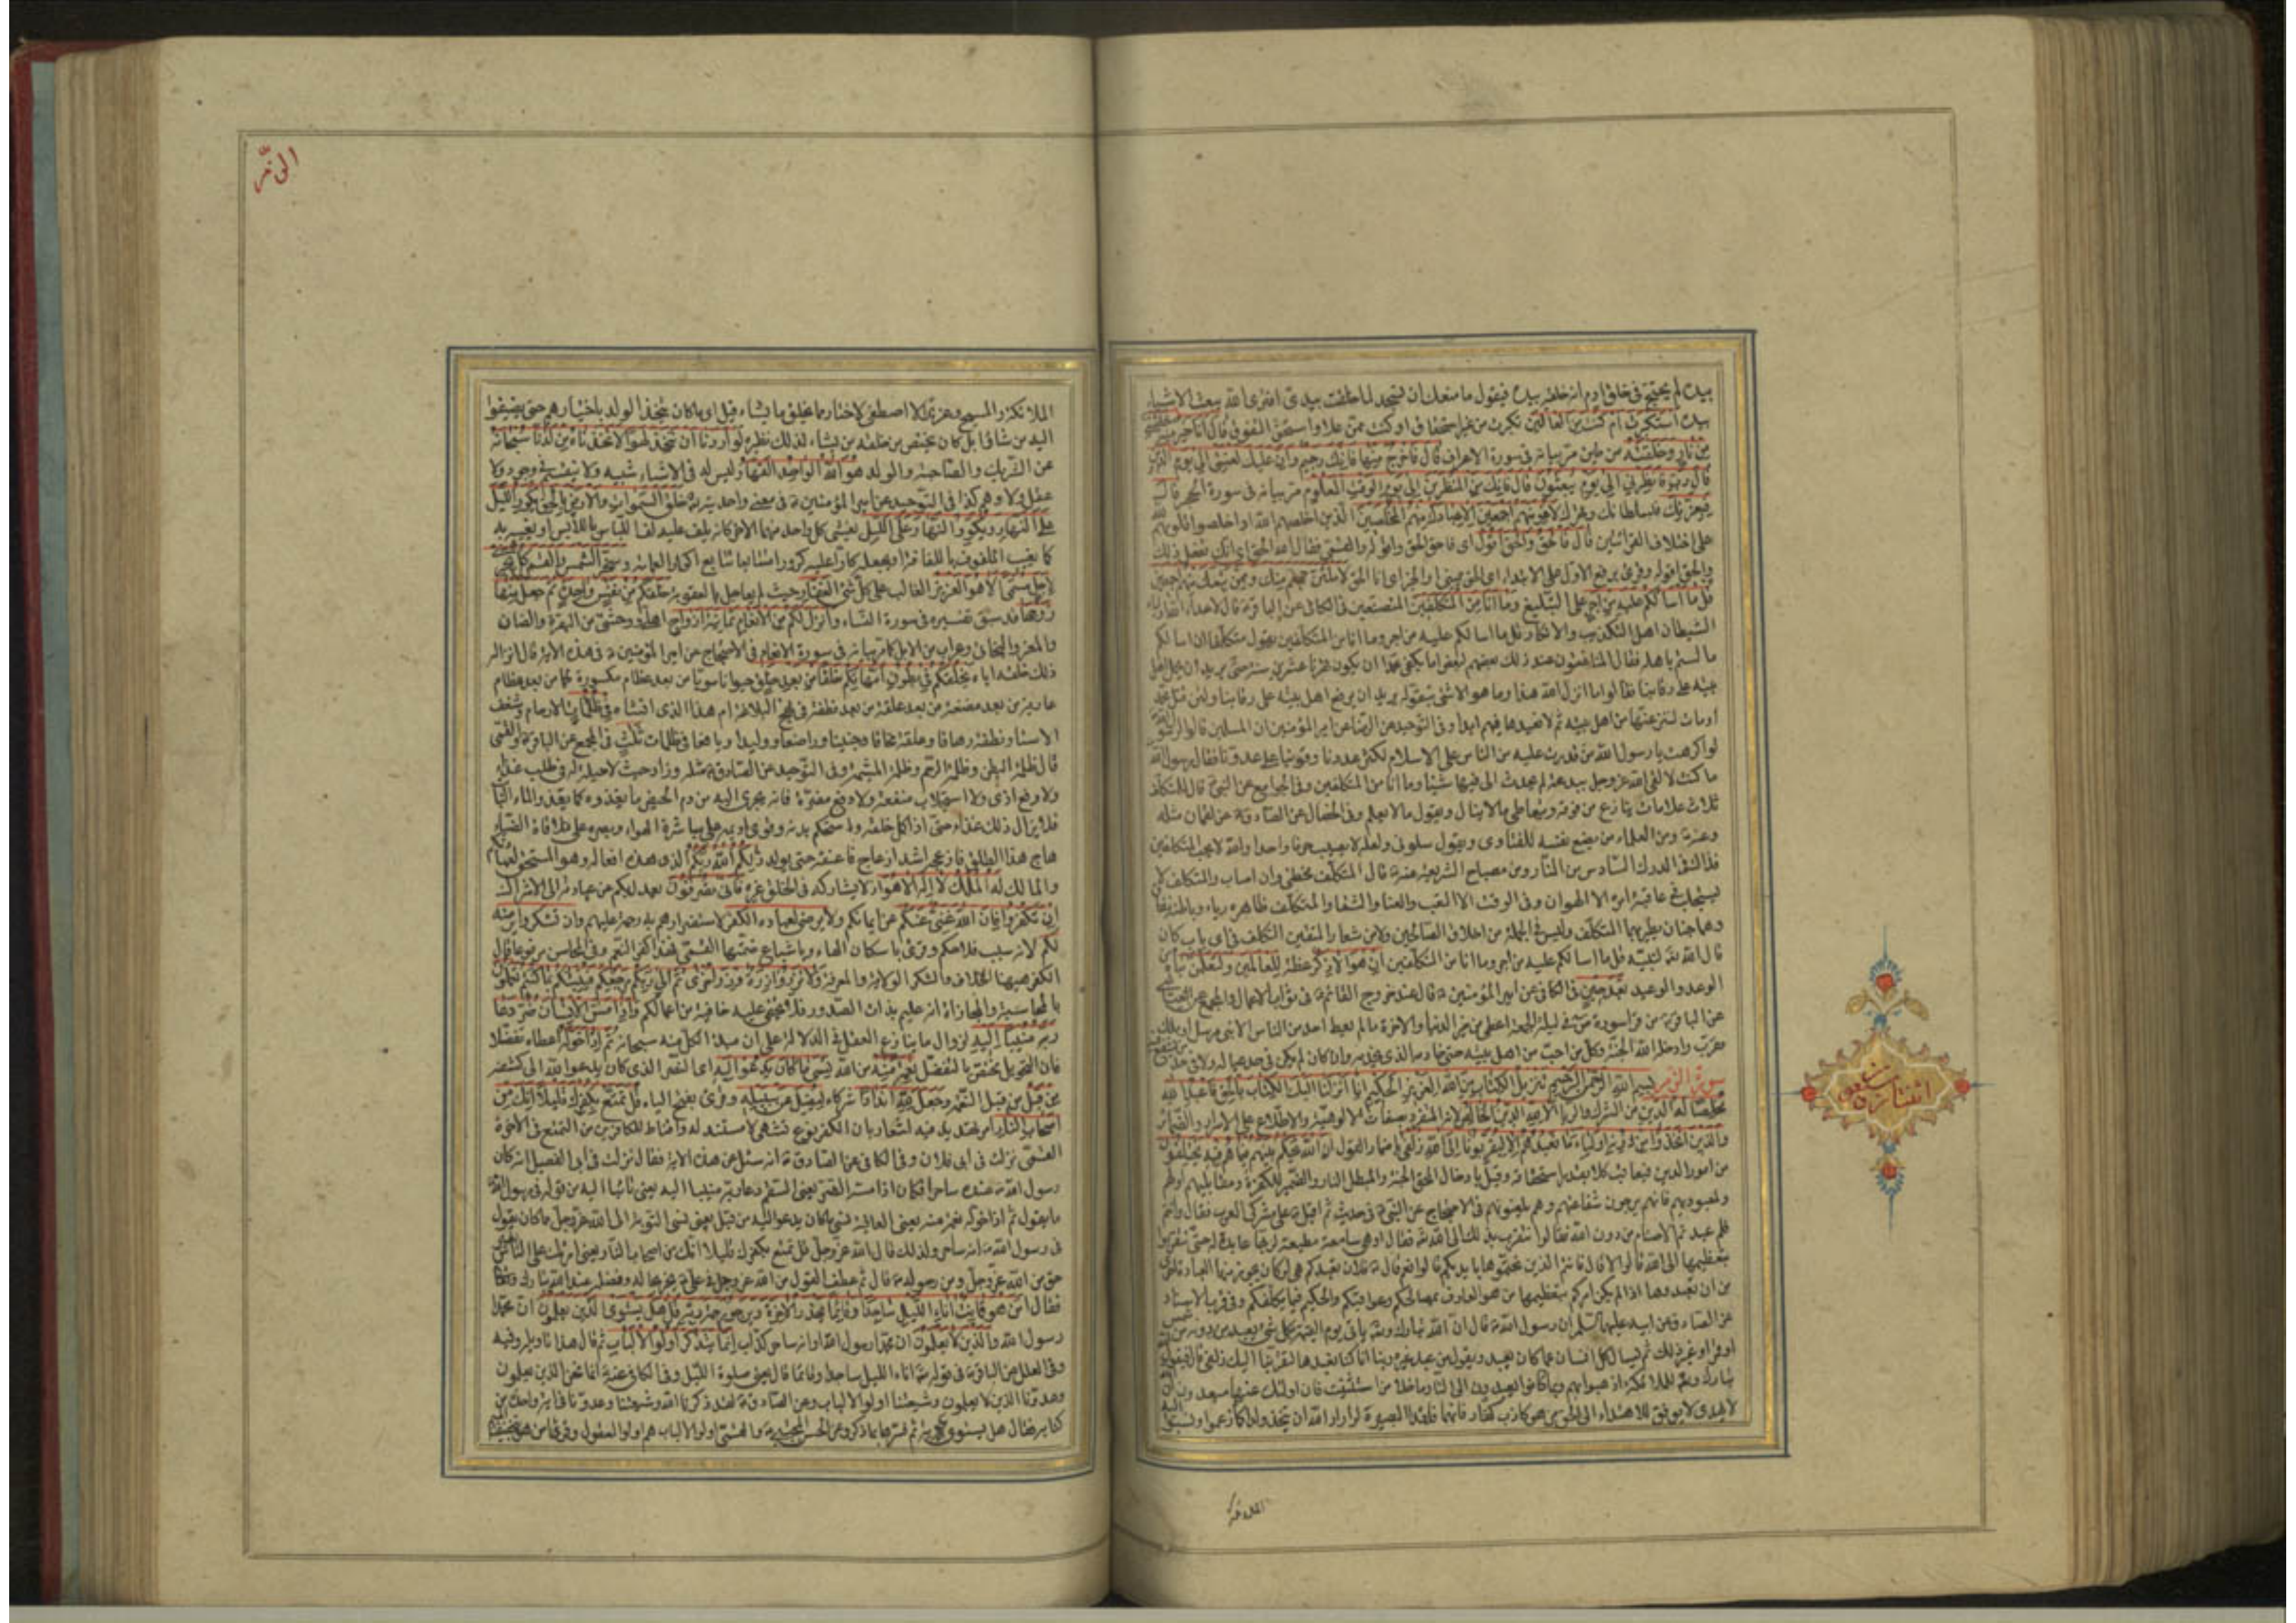 بيده لم يحتج في خلق ادم انه خلقه بيده فيقول ما منعك ان تسجد لما خلقت بيدي افترى الله يبعث الاشياء
بيده استكبرت ام كنت من العالين تكبرت من غير استحقاق او كنت ممن علا واستحق التفوق قال انا خير منه خلقتني
من نار وخلقته من طين مر بيانه في سورة الاعراف قال فاخرج منها فانك رجيم وان عليك لعنتي الى يوم الدين
قال رب فانظرني الى يوم يبعثون قال فانك من المنظرين الى يوم الوقت المعلوم مر بيانه في سورة الحجر قال
فبعزتك فبسلطانك لاغوينهم اجمعين الا عبادك منهم المخلصين الذين اخلصهم الله او اخلصوا قلوبهم لله
على اختلاف القرائتين قال فالحق والحق اقول اى فاحق الحق واقوله والقمي فقال الله الحق اى انك تفعل ذلك
والحق اقوله وقرئ برفع الاول على الابتداء اى الحق يميني او الخبر اى انا الحق لاملئن جهنم منك وممن تبعك منهم اجمعين
قل ما اسالكم عليه من اجر على التبليغ وما انا من المتكلفين المتصنعين في الكافي عن الباقر قال لاعداء الله اولياء
الشيطان اهل التكذيب والانكار قل ما اسالكم عليه من اجر وما انا من المتكلفين يقول متكلفا ان اسالكم
ما لستم باهله فقال المنافقون عند ذلك بعضهم لبعض اما يكفى محمدا ان يكون قهرنا عشرين سنة حتى يريد ان يحمل اهل
بيته على رقابنا فقالوا ما انزل الله هذا وما هو الا شئ يتقوله يريد ان يرفع اهل بيته على رقابنا ولئن قتل محمد
او مات لننزعنها من اهل بيته ثم لا نعيدها فيهم ابدا وفي التوحيد عن الرضا عن امير المؤمنين ان المسلمين قالوا لرسول الله
لو اكرهت يا رسول الله من قدرت عليه من الناس على الاسلام لكثر عددنا وقوينا على عدونا فقال رسول الله
ما كنت لالقى الله عز وجل ببدعة لم يحدث الى فيها شيئا وما انا من المتكلفين وفي الجوامع عن النبي قال للمتكلف
ثلاث علامات ينازع من فوقه ويتعاطى ما لا ينال ويقول ما لا يعلم وفي الخصال عن الصادق عن لقمان مثله
وعنه ومن العلماء من يضع نفسه للفتاوى ويقول سلوني ولعله لا يصيب حرفا واحدا والله لا يحب المتكلفين
فذاك في الدرك السادس من النار ومن مصباح الشريعة عنه قال المتكلف مخطئ وان اصاب والمتكلف لا
يستجلب في عاقبة امره الا الهوان وفي الوقت الا التعب والعنا والشقا والمتكلف ظاهره رياء وباطنه نفاق
وهما جناحان يطير بهما المتكلف وليس في الجملة من اخلاق الصالحين ولا من شعار المتقين التكلف في اى باب كان
قال الله لنبيه قل ما اسالكم عليه من اجر وما انا من المتكلفين ان هو الا ذكر عظة للعالمين ولتعلمن نباه من
الوعد والوعيد بعد حين في الكافي عن امير المؤمنين قال عند خروج القائم في ثواب الاعمال والمجمع
عن الباقر من قرا سورة ص في ليلة الجمعة اعطى من خير الدنيا والاخرة ما لم يعط احد من الناس الا نبى مرسل او ملك
مقرب وادخله الله الجنة وكل من احب من اهل بيته حتى خادمه الذى يخدمه وان كان لم يكن في حد عياله ولا في حد
سورة الزمر بسم الله الرحمن الرحيم تنزيل الكتاب من الله العزيز الحكيم انا انزلنا اليك الكتاب بالحق فاعبد الله
مخلصا له الدين من الشرك والريا الا لله الدين الخالص لانه المنفرد بصفات الالوهية والاطلاع على الاسرار والضمائر
والذين اتخذوا من دونه اولياء ما نعبدهم الا ليقربونا الى الله زلفى باضمار القول ان الله يحكم بينهم فيما هم فيه يختلفون
من امور الدين فيعاقب كلا بقدر استحقاقه وقيل بادخال المحق الجنة والمبطل النار والضمير للكفرة ومقابليهم او لهم
ولمعبوديهم فانهم يرجون شفاعتهم وهم يلعنونهم في الاحتجاج عن النبي في حديث ثم اقبل على مشركى العرب فقال وانتم
فلم عبدتم الاصنام من دون الله فقالوا نتقرب بذلك الى الله فقال او هي سامعة مطيعة لربها عابدة له حتى تتقربوا
بتعظيمها الى الله قالوا لا قال فانتم الذين نحتموها بايديكم قالوا نعم قال فلان تعبدكم هي لو كان يجوز منها العبادة احرى
من ان تعبدوها اذا لم يكن امركم بتعظيمها من هو العارف بمصالحكم وعواقبكم والحكيم فيما يكلفكم وفي قرب الاسناد
عن الصادق عن ابيه عليهما السلم ان رسول الله قال ان الله تبارك وتعالى ياتي يوم القيمة بكل شئ يعبد من دونه من شمس
او قمر او غير ذلك ثم يسال كل انسان عما كان يعبد فيقول من عبد غيره ربنا انا كنا نعبدها لتقربنا اليك زلفى قال فيقول الله
تبارك وتعالى للملائكة اذهبوا بهم وبما كانوا يعبدون الى النار ما خلا من استثنيت فان اولئك عنها مبعدون ان الله
لا يهدى لا يوفق للاهتداء الى الحق من هو كاذب كفار فانهما فاقدا البصيرة لو اراد الله ان يتخذ ولدا كما زعموا ونسبوا اليه
الملائكة
اثنا
الزمر
الملائكة والمسيح وعزير لاصطفى لاختار مما يخلق ما يشاء قيل اى ما كان يتخذ الولد باختيارهم حتى يضيفوا
اليه من شاؤا بل كان يختص من خلقه من يشاء لذلك نظيره لو اردنا ان نتخذ لهوا لاتخذناه من لدنا سبحانه
عن الشريك والصاحبة والولد هو الله الواحد القهار ليس له في الاشياء شبيه ولا ينقسم في وجود ولا
عقل ولا وهم كذا في التوحيد عن امير المؤمنين في معنى واحديته خلق السموات والارض بالحق يكور الليل
على النهار ويكور النهار على الليل يغشى كل واحد منهما الاخر كانه يلف عليه لف اللباس باللابس او يغيبه به
كما يغيب الملفوف باللفافة او يجعله كارا عليه كرورا متتابعا تتابع اكوار العمامة وسخر الشمس والقمر كل يجرى
لاجل مسمى الا هو العزيز الغالب على كل شئ الغفار حيث لم يعاجل بالعقوبة خلقكم من نفس واحدة ثم جعل منها
زوجها قد سبق تفسيره في سورة النساء وانزل لكم من الانعام ثمانية ازواج اهلى ووحشى من البقر والضان
والمعز والبخاتي وعراب من الابل كما مر بيانه في سورة الانعام في الاحتجاج عن امير المؤمنين في هذه الاية قال انزاله
ذلك خلقه اياه يخلقكم في بطون امهاتكم خلقا من بعد خلق حيوانا سويا من بعد عظام مكسوة لحما من بعد عظام
عارية من بعد مضغة من بعد علقة من بعد نطفة في نهج البلاغة ام هذا الذى انشاه في ظلمات الارحام وشغف
الاستار نطفة دهاقا وعلقة محاقا وجنينا وراضعا ووليدا ويافعا في ظلمات ثلث في المجمع عن الباقر والقمى
قال ظلمة البطن وظلمة الرحم وظلمة المشيمة وفي التوحيد عن الصادق مثله وزاد حيث لا حيلة له في طلب غذاء
ولا دفع اذى ولا استجلاب منفعة ولا دفع مضرة فانه يجرى اليه من دم الحيض ما يغذوه كما يغذو الماء النبات
فلا يزال ذلك غذاءه حتى اذا كمل خلقه واستحكم بدنه وقوى اديمه على مباشرة الهواء وبصره على ملاقاة الضياء
هاج هذا الطلق بامه فازعجه اشد ازعاج فاعنفه حتى يولد ذلكم الله ربكم الذى هذه افعاله وهو المستحق لعبادتكم
والمالك له الملك لا اله الا هو اذ لا يشاركه في الخلق غيره فانى تصرفون يعدل بكم عن عبادته الى الاشراك
ان تكفروا فان الله غنى عنكم عن ايمانكم ولا يرضى لعباده الكفر لاستضرارهم به رحمة عليهم وان تشكروا يرضه
لكم لانه سبب فلاحكم وقرئ باسكان الهاء وباشباع ضمتها القمى فهذا كفر النعم وفي المحاسن مرفوعا قال
الكفر ههنا الخلاف والشكر الولاية والمعرفة ولا تزر وازرة وزر اخرى ثم الى ربكم مرجعكم فينبئكم بما كنتم تعملون
بالمحاسبة والمجازاة انه عليم بذات الصدور فلا تخفى عليه خافية من اعمالكم واذا مس الانسان ضر دعا
ربه منيبا اليه لزوال ما ينازع العقل في الدلالة على ان مبدا الكل منه سبحانه ثم اذا خوله اعطاه تفضلا
فان التخويل مختص بالتفضل نعمة منه من الله نسى ما كان يدعو اليه اى الضر الذى كان يدعو الله الى كشفه
من قبل من قبل النعمة وجعل لله اندادا شركاء ليضل عن سبيله وقرئ بفتح الياء قل تمتع بكفرك قليلا انك من
اصحاب النار امر تهديد فيه اشعار بان الكفر نوع تشهى لا مستند له واقناط للكافرين من التمتع في الاخرة
القمى نزلت في ابى فلان وفي الكافي عن الصادق انه سئل عن هذه الاية فقال نزلت في ابى الفصيل انه كان
رسول الله عنده ساحرا فكان اذا مسه الضر يعنى السقم دعا ربه منيبا اليه يعنى تائبا اليه من قوله في رسول الله
ما يقول ثم اذا خوله نعمة منه يعنى العافية نسى ما كان يدعو اليه من قبل يعنى نسى التوبة الى الله عز وجل مما كان يقول
في رسول الله انه ساحر ولذلك قال الله عز وجل قل تمتع بكفرك قليلا انك من اصحاب النار يعنى امرتك على الناس بغير
حق من الله عز وجل ومن رسوله قال ثم عطف القول من الله عز وجل في على يخبر بحاله وفضله عند الله تبارك وتعالى
فقال امن هو قانت اناء الليل ساجدا وقائما يحذر الاخرة ويرجو رحمة ربه قل هل يستوى الذين يعلمون ان محمدا
رسول الله والذين لا يعلمون ان محمدا رسول الله او انه ساحر كذاب انما يتذكر اولوا الالباب ثم قال هذا تاويله وفيه
وفي العلل عن الباقر في قوله اناء الليل ساجدا وقائما قال يعنى صلوة الليل وفي الكافي عنه انما نحن الذين يعلمون
وعدونا الذين لا يعلمون وشيعتنا اولوا الالباب وعن الصادق لقد ذكرنا الله وشيعتنا وعدونا في اية واحدة من
كتابه فقال هل يستوى الاية ثم فسرها بما ذكر وعن الحسن المجتبى اولوا الالباب هم اولوا العقول وقرئ امن هو بتخفيف